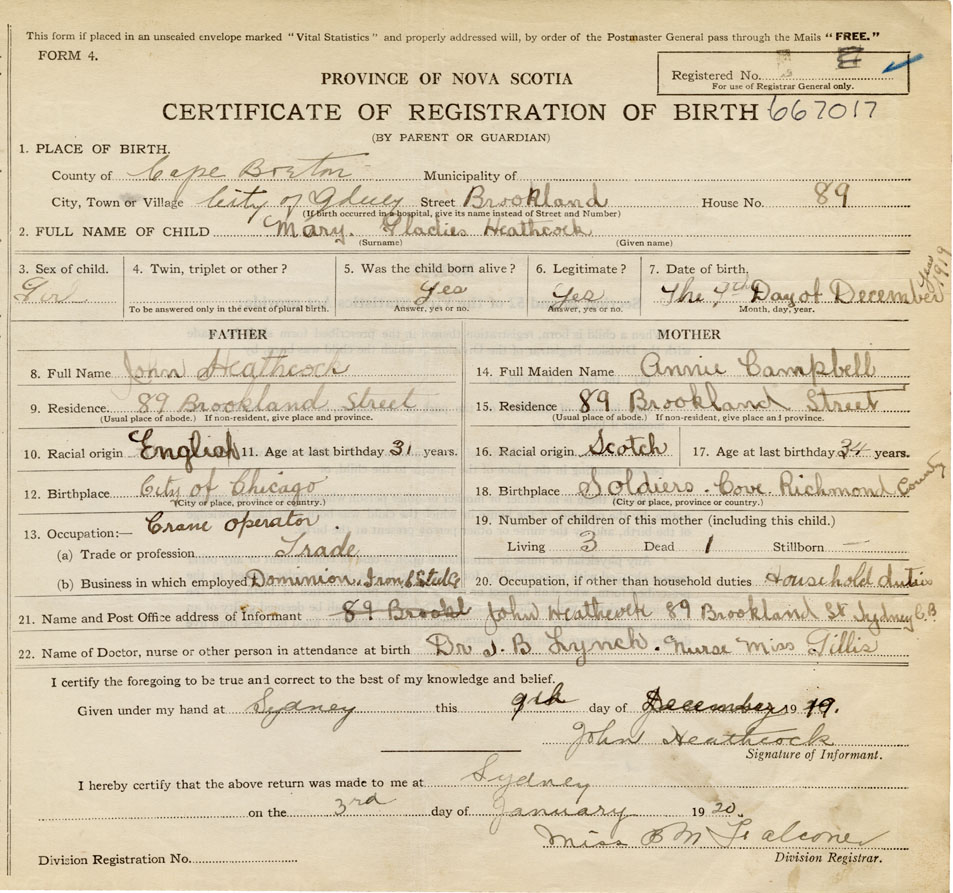 This form if placed in an unsealed envelope marked "Vital Statistics" and properly addressed will, by order of the Postmaster General pass through the Mails "FREE."
FORM 4.
Registered No.
For use of Registrar General only.
PROVINCE OF NOVA SCOTIA
CERTIFICATE OF REGISTRATION OF BIRTH 667017
(BY PARENT OR GUARDIAN)
1. PLACE OF BIRTH.
County of Cape Breton Municipality of
City, Town or Village City of Street Brookland House No. 89
(If birth occurred in a hospital, give its name instead of Street and Number)
2. FULL NAME OF CHILD Mary. Gladies Heathcock
(Surname) (Given name)
3. Sex of child. 4. Twin, triplet or other? 5. Was the child born alive? 6. Legitimate? 7. Date of birth.
Girl Yes Yes The 7th Day of December Year 1919
To be answered only in the event of plural birth. Answer, yes or no. Answer, yes or no. Month, day, year.
FATHER MOTHER
8. Full Name John Heathcock 14. Full Maiden Name Annie Campbell
9. Residence. 89 Brookland Street 15. Residence 89 Brookland Street
(Usual place of abode.) If non-resident, give place and province. (Usual place of abode.) If non-resident, give place and province.
10. Racial origin English 11. Age at last birthday 31 years. 16. Racial origin Scotch 17. Age at last birthday 34 years.
12. Birthplace City of Chicago 18. Birthplace Soldiers. Cove Richmond County
(City or place, province or country.) (City or place, province or country.)
13. Occupation:— Crane operator. 19. Number of children of this mother (including this child.)
(a) Trade or profession Trade Living 3 Dead 1 Stillborn —
(b) Business in which employed Dominion. Iron & Steel Co 20. Occupation, if other than household duties Household duties
21. Name and Post Office address of Informant 89 Brookl John Heathcock 89 Brookland St Sydney C.B
22. Name of Doctor, nurse or other person in attendance at birth Dr J. B Lynch. Nurse Miss Gillis
I certify the foregoing to be true and correct to the best of my knowledge and belief.
Given under my hand at Sydney this 9th day of December 19 19.
John Heathcock
Signature of Informant.
I hereby certify that the above return was made to me at Sydney
on the 3rd day of January 19 20.
Miss M Falconer
Division Registration No. Division Registrar.